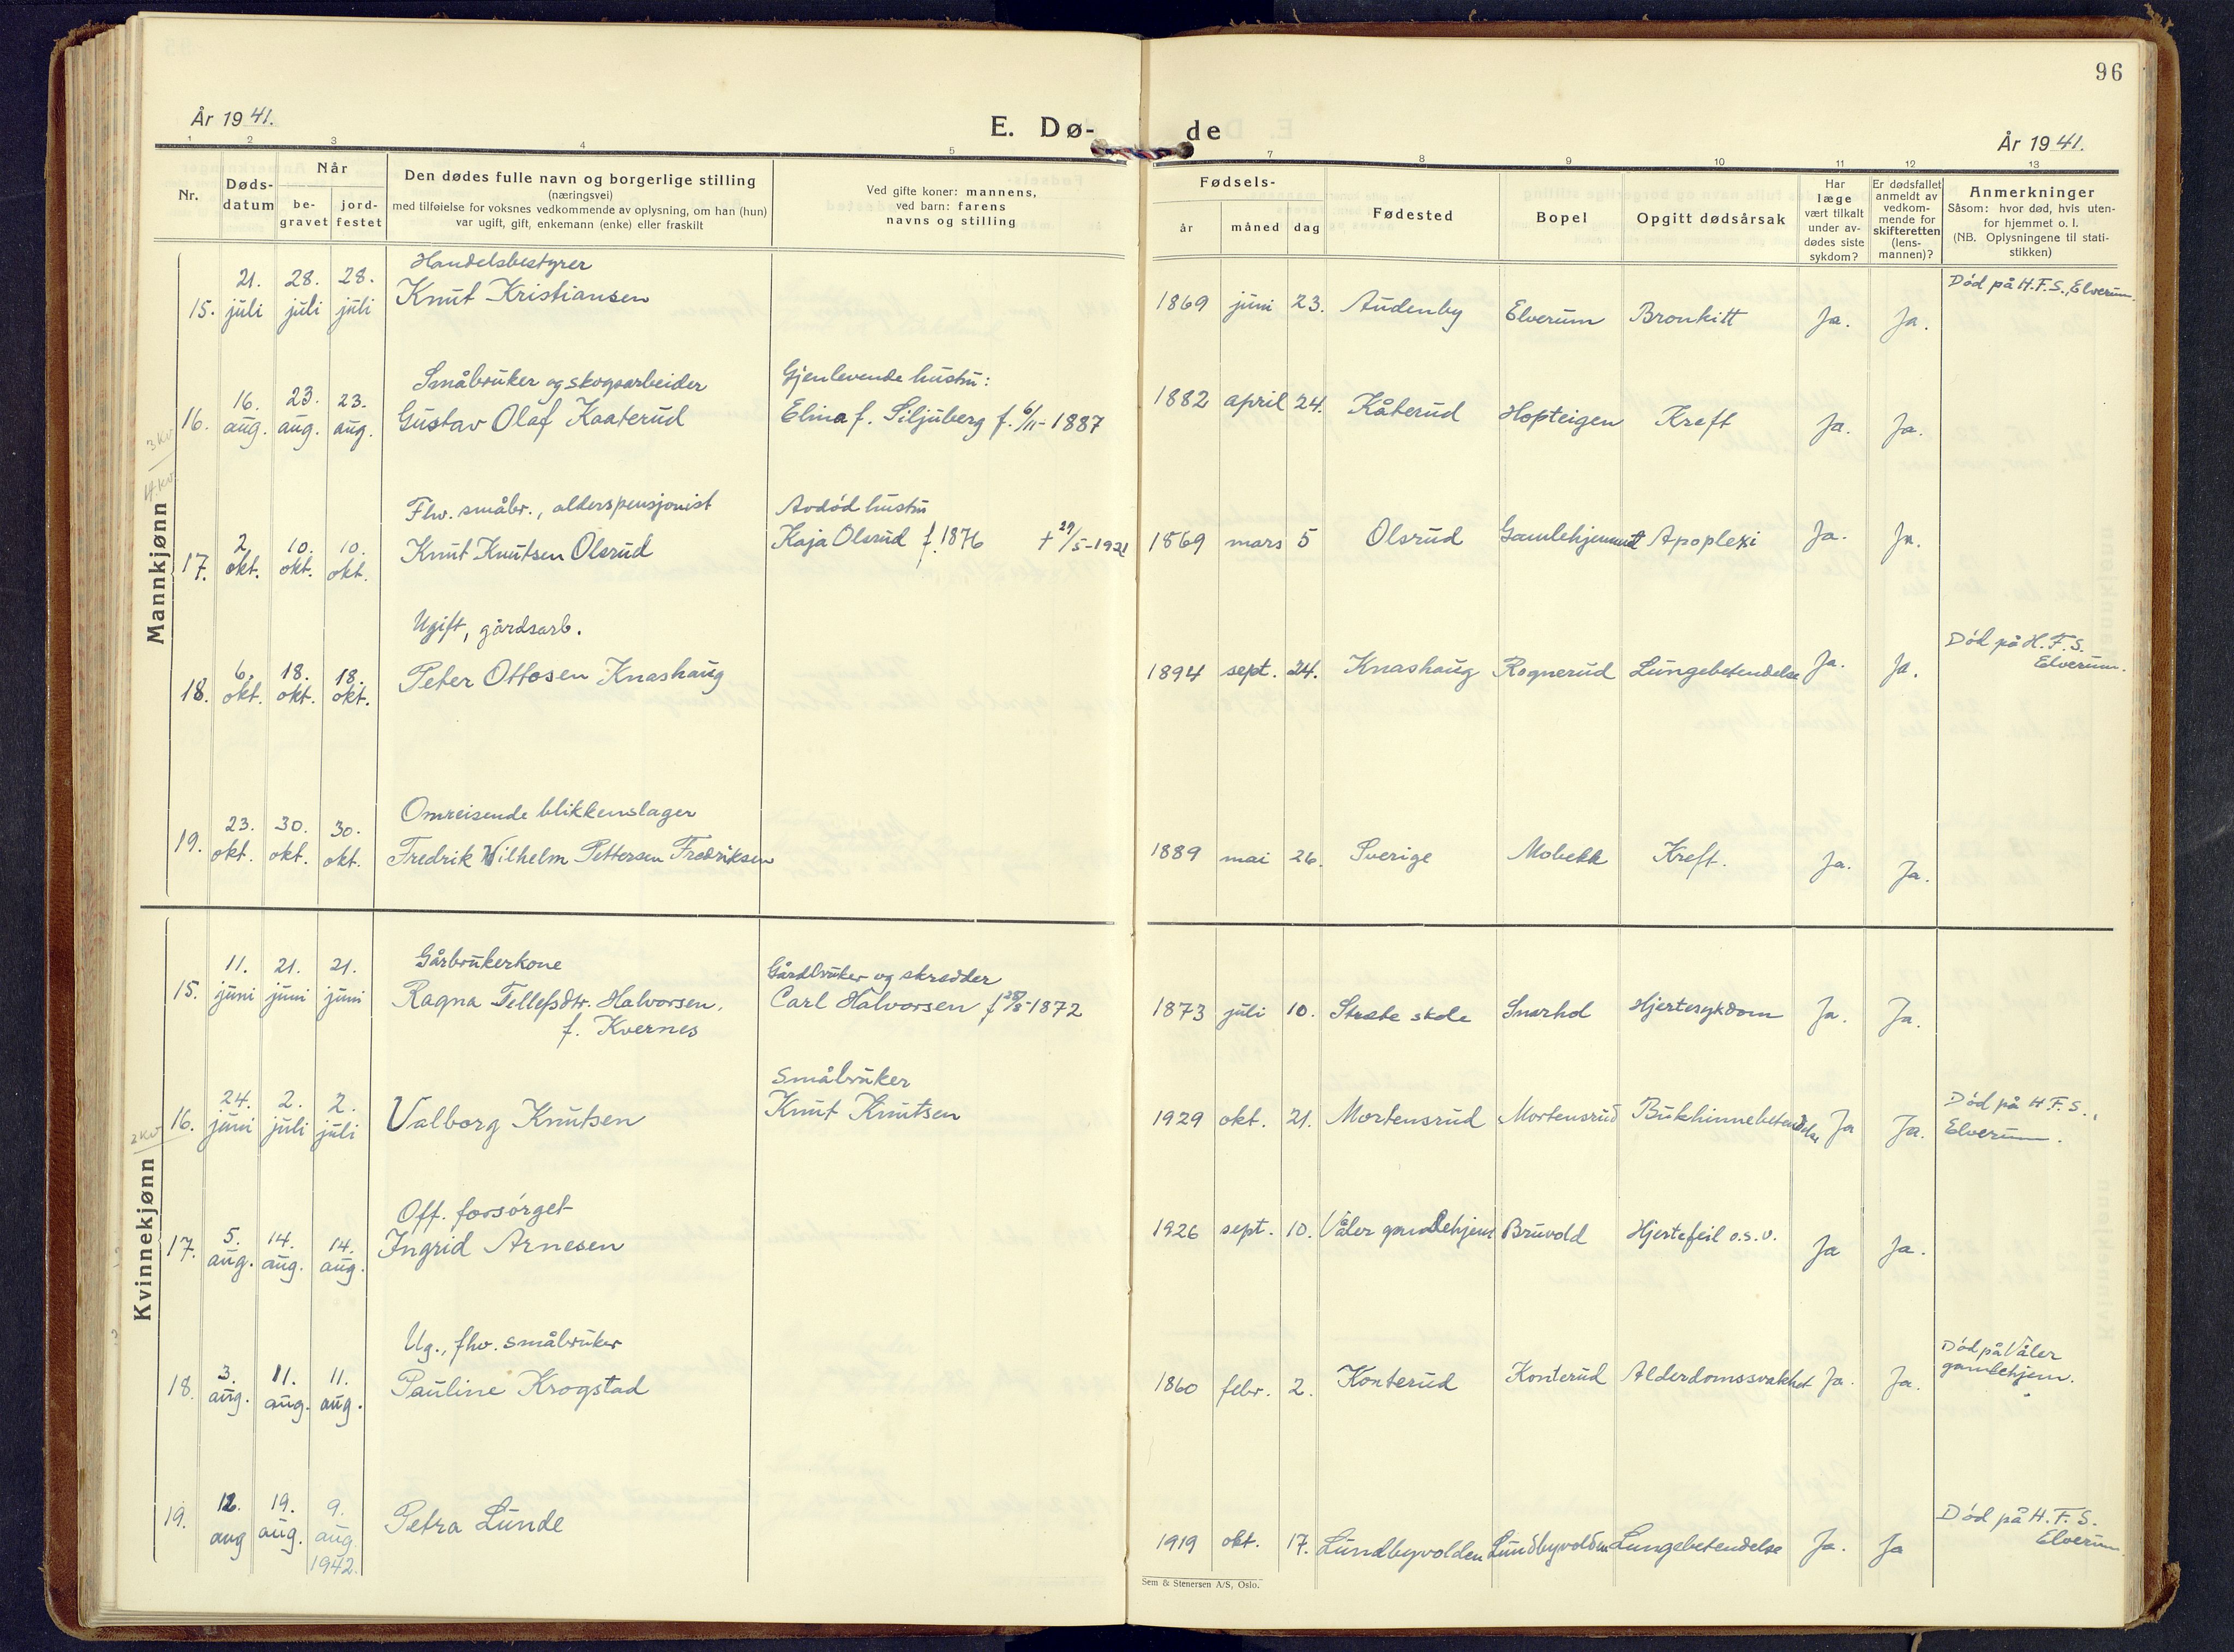 96
År 1941.
E. Dø-
de
År 1941.
1 2 3 4 5 7 8 9 10 11 12 13
Nr.
Døds-
datum
Når
be-
gravet
jord-
festet
Den dødes fulle navn og borgerlige stilling
(næringsvei)
med tilføielse for voksnes vedkommende av oplysning, om han (hun)
var ugift, gift, enkemann (enke) eller fraskilt
Ved gifte koner: mannens,
ved barn: farens
navns og stilling
Fødsels-
år måned dag
Fødested
Bopel
Opgitt dødsårsak
Har
læge
vært tilkalt
under av-
dødes siste
sykdom?
Er dødsfallet
anmeldt av
vedkom-
mende for
skifteretten
(lens-
mannen)?
Anmerkninger
Såsom: hvor død, hvis uten-
for hjemmet o. l.
(NB. Oplysningene til stati-
stikken)
Mannkjønn
Handelsbestyrer
21. 28. 28. Knut Kristiansen
15. juli juli juli
1869 juni 23. Audenby Elverum Bronkitt Ja. Ja.
Død på H.F.S., Elverum.
Småbruker og skogsarbeider
Gjenlevende hustru:
16. 23. 23. Gustav Olaf Kaaterud Elina f. Siljuberg f. 6/11-1887
16. aug. aug. aug.
1882 april 24. Kåterud Hopteigen Kreft Ja. Ja.
3 kv
4. kv.
Fhv. småbr., alderspensjonist
Avdød hustru
2. 10. 10. Knut Knutsen Olsrud Kaja Olsrud f. 1876 + 29/5-1921
17. okt. okt. okt.
1869 mars 5 Olsrud Gamlehjemmet Apoplexi Ja. Ja.
Ugift, gårdsarb.
6. 18. 18. Peter Ottosen Knashaug
18. okt. okt. okt.
1894 sept. 24. Knashaug Rognerud Lungebetendelse Ja. Ja.
Død på H.F.S.
Elverum.
Omreisende blikkenslager
23. 30. 30. Fredrik Wilhelm Pettersen Fredriksen
19. okt. okt. okt.
1889 mai 26. Sverige Mobekk Kreft. Ja. Ja.
Kvinnekjønn
Gårbrukerkone
Gårdbruker og skredder
11. 21. 21. Ragna Tellefsdtr. Halvorsen, Carl Halvorsen f 28/8-1872
15. juni juni juni
f. Kvernes
1873 juli 10. Stræte skole Snarhol Hjertesykdom Ja. Ja.
Småbruker
24. 2. 2. Valborg Knutsen Knut Knutsen
16. juni juli juli
1929 okt. 21. Mortensrud Mortensrud Bukhinnebetendelse Ja Ja.
Død på H.F.S.,
Elverum.
2 kv
Off. forsørget
5. 14. 14. Ingrid Arnesen
17. aug. aug. aug.
1926 sept. 10. Våler gamlehjem Bruvold Hjertefeil o.s.v. Ja Ja.
Ug., fhv. småbruker
3. 11. 11. Pauline Krogstad
18. aug. aug. aug.
1860 febr. 2. Konterud Konterud Alderdomssvakhet Ja. Ja.
Død på Våler
gamlehjem.
12. 19. 9. Petra Lunde
19. aug aug. aug.
1942.
1919 okt. 17. Lundbyvolden Lundbyvolden Lungebetendelse Ja. Ja
Død på H.F.S.
Elverum.
Sem & Stenersen A/S, Oslo.